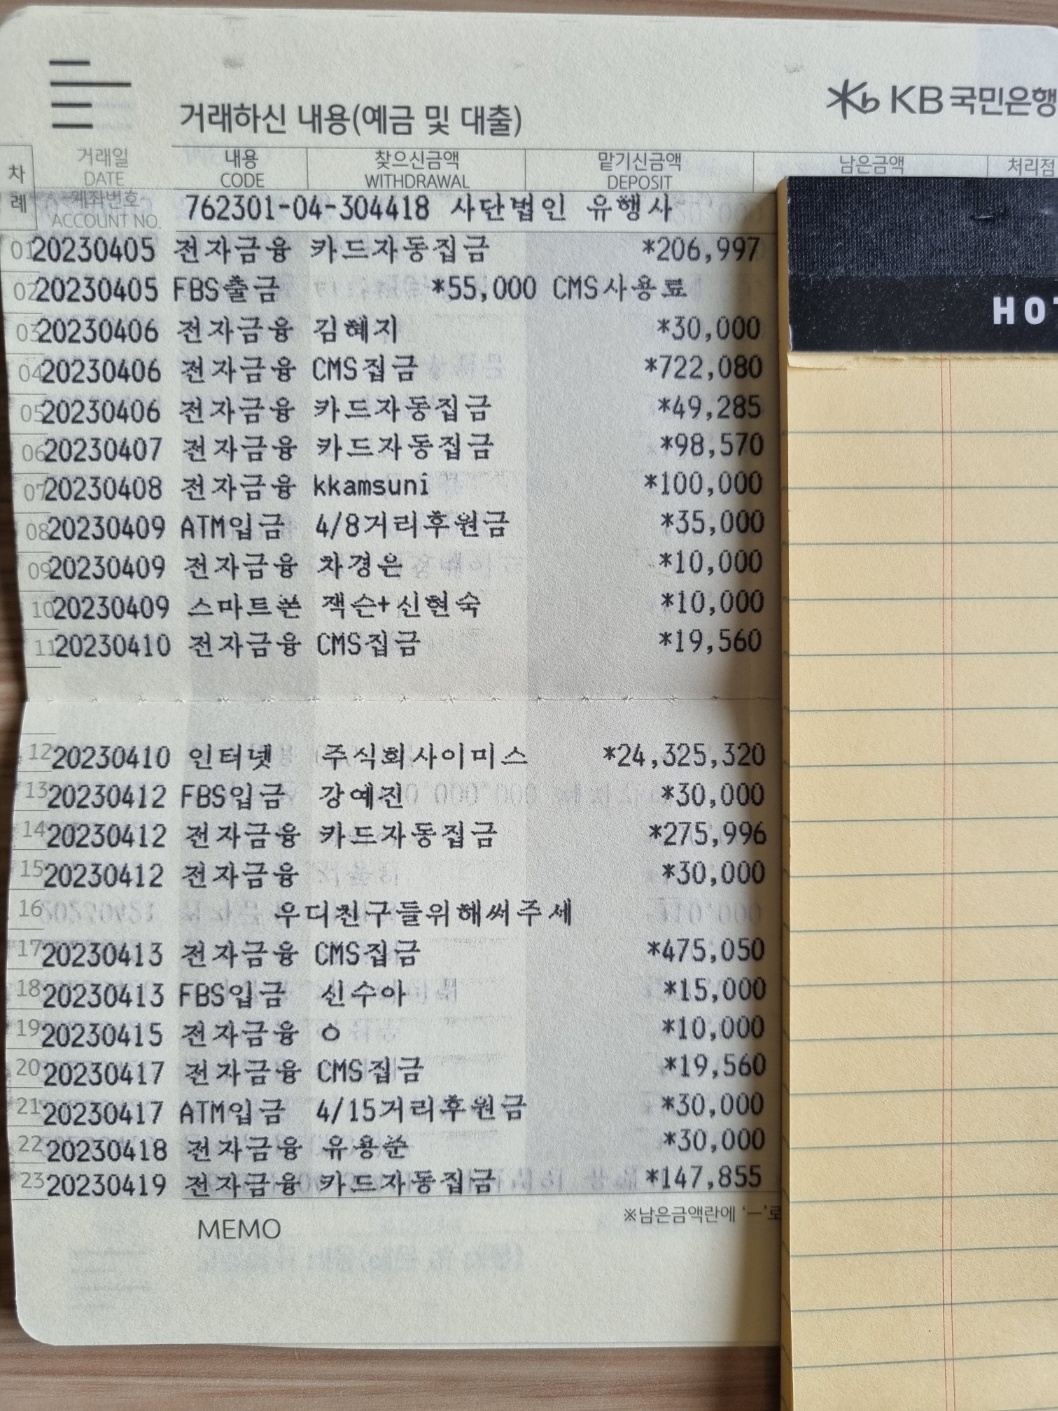 거래하신 내용(예금 및 대출)
KB국민은행
차례
거래일 DATE
내용 CODE
찾으신금액 WITHDRAWAL
맡기신금액 DEPOSIT
남은금액
처리점
계좌번호 ACCOUNT NO.
762301-04-304418 사단법인 유행사
01 20230405 전자금융 카드자동집금 *206,997
02 20230405 FBS출금 *55,000 CMS사용료
03 20230406 전자금융 김혜지 *30,000
04 20230406 전자금융 CMS집금 *722,080
05 20230406 전자금융 카드자동집금 *49,285
06 20230407 전자금융 카드자동집금 *98,570
07 20230408 전자금융 kkamsuni *100,000
08 20230409 ATM입금 4/8거리후원금 *35,000
09 20230409 전자금융 차경은 *10,000
10 20230409 스마트폰 잭슨+신현숙 *10,000
11 20230410 전자금융 CMS집금 *19,560
12 20230410 인터넷 주식회사이미스 *24,325,320
13 20230412 FBS입금 강예진 *30,000
14 20230412 전자금융 카드자동집금 *275,996
15 20230412 전자금융 *30,000
16 우디친구들위해써주세
17 20230413 전자금융 CMS집금 *475,050
18 20230413 FBS입금 신수아 *15,000
19 20230415 전자금융 ㅇ *10,000
20 20230417 전자금융 CMS집금 *19,560
21 20230417 ATM입금 4/15거리후원금 *30,000
22 20230418 전자금융 유용쑨 *30,000
23 20230419 전자금융 카드자동집금 *147,855
MEMO
※남은금액란에 '—'로